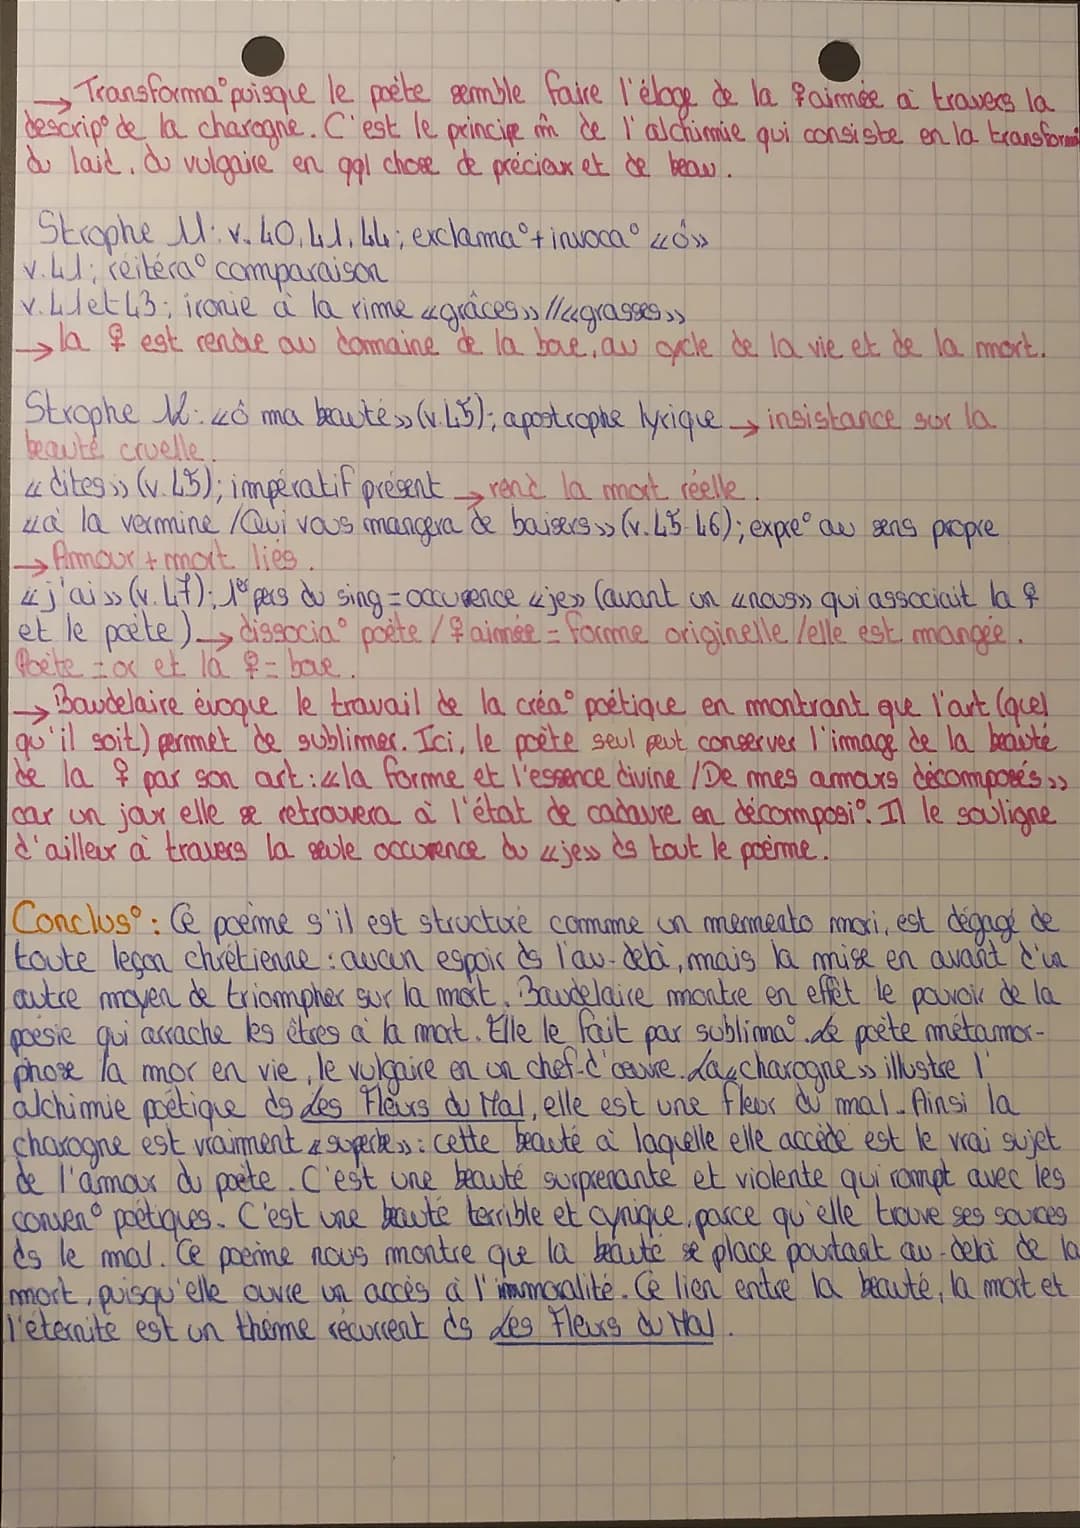 → Transforma° puisque le poète semble faire l'éloge de la ♀ aimée à travers la
descrip° de la charogne. C'est le principe m̂ de l'alchimie qui consiste en la transforma
du laid, du vulgaire en qql chose de précieux et de beau.
Strophe 11: v. 40, 41, 44; exclama° + invoca° «ô»
v. 41; réitéra° comparaison
v. 41 et 43; ironie à la rime «grâces» // «grasses»
→ la ♀ est rendue au domaine de la boue, au cycle de la vie et de la mort.
Strophe 12: «ô ma beauté» (v.45); apostrophe lyrique → insistance sur la
beauté cruelle.
«dites» (v.45); impératif présent → rend la mort réelle.
«à la vermine / Qui vous mangera de baisers» (v.45-46); expre° au sens propre
→ Amour + mort liés.
«j'ai» (v.47); 1° pers du sing = occurence «je» (avant un «nous» qui associait la ♀
et le poète) → dissocia° poète / ♀ aimée = forme originelle / elle est mangée.
Poète = or et la ♀ = boue.
→ Baudelaire évoque le travail de la créa° poétique en montrant que l'art (quel
qu'il soit) permet de sublimer. Ici, le poète seul peut conserver l'image de la beauté
de la ♀ par son art: «la forme et l'essence divine / De mes amours décomposés»
car un jour elle se retrouvera à l'état de cadavre en décomposi°. Il le souligne
d'ailleur à travers la seule occurence du «je» ds tout le poème.
Conclus°: Ce poème s'il est structuré comme un memento mori, est dégagé de
toute leçon chrétienne: aucun espoir ds l'au-delà, mais la mise en avant d'un
autre moyen de triompher sur la mort. Baudelaire montre en effet le pouvoir de la
poésie qui arrache les êtres à la mort. Elle le fait par sublima°. Le poète métamor-
phose la mor en vie, le vulgaire en un chef-d'œuvre. La «charogne» illustre l'
alchimie poétique ds Les Fleurs du Mal, elle est une fleur du mal. Ainsi la
charogne est vraiment «superbe»: cette beauté à laquelle elle accède est le vrai sujet
de l'amour du poète. C'est une beauté surprenante et violente qui rompt avec les
conven° poétiques. C'est une beauté terrible et cynique, parce qu'elle trouve ses sources
ds le mal. Ce poème nous montre que la beauté se place pourtant au-delà de la
mort, puisqu'elle ouvre un accès à l'immoralité. Ce lien entre la beauté, la mort et
l'éternité est un thème récurrent ds Les Fleurs du Mal.